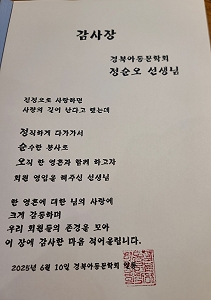 감사장
경북아동문학회
정순오 선생님
진정으로 사랑하면
사랑의 길이 난다고 했는데
정직하게 다가가서
순수한 봉사로
오직 한 영혼과 함께 하고자
회원 영입을 해주신 선생님
한 영혼에 대한 님의 사랑에
크게 감동하며
우리 회원들의 존경을 모아
이 장에 감사한 마음 적어올립니다.
2025년 6월 10일 경북아동문학회